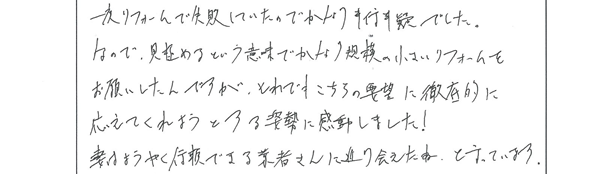 一度リフォームで失敗していたのでかなり半信半疑でした。
なので、見極めるという意味でかなり規模の小さいリフォームを
お願いしたんですが、それでもこちらの要望に徹底的に
応えてくれようとする姿勢に感動しました！
妻はようやく信頼できる業者さんに巡り会えたね、と言っている。